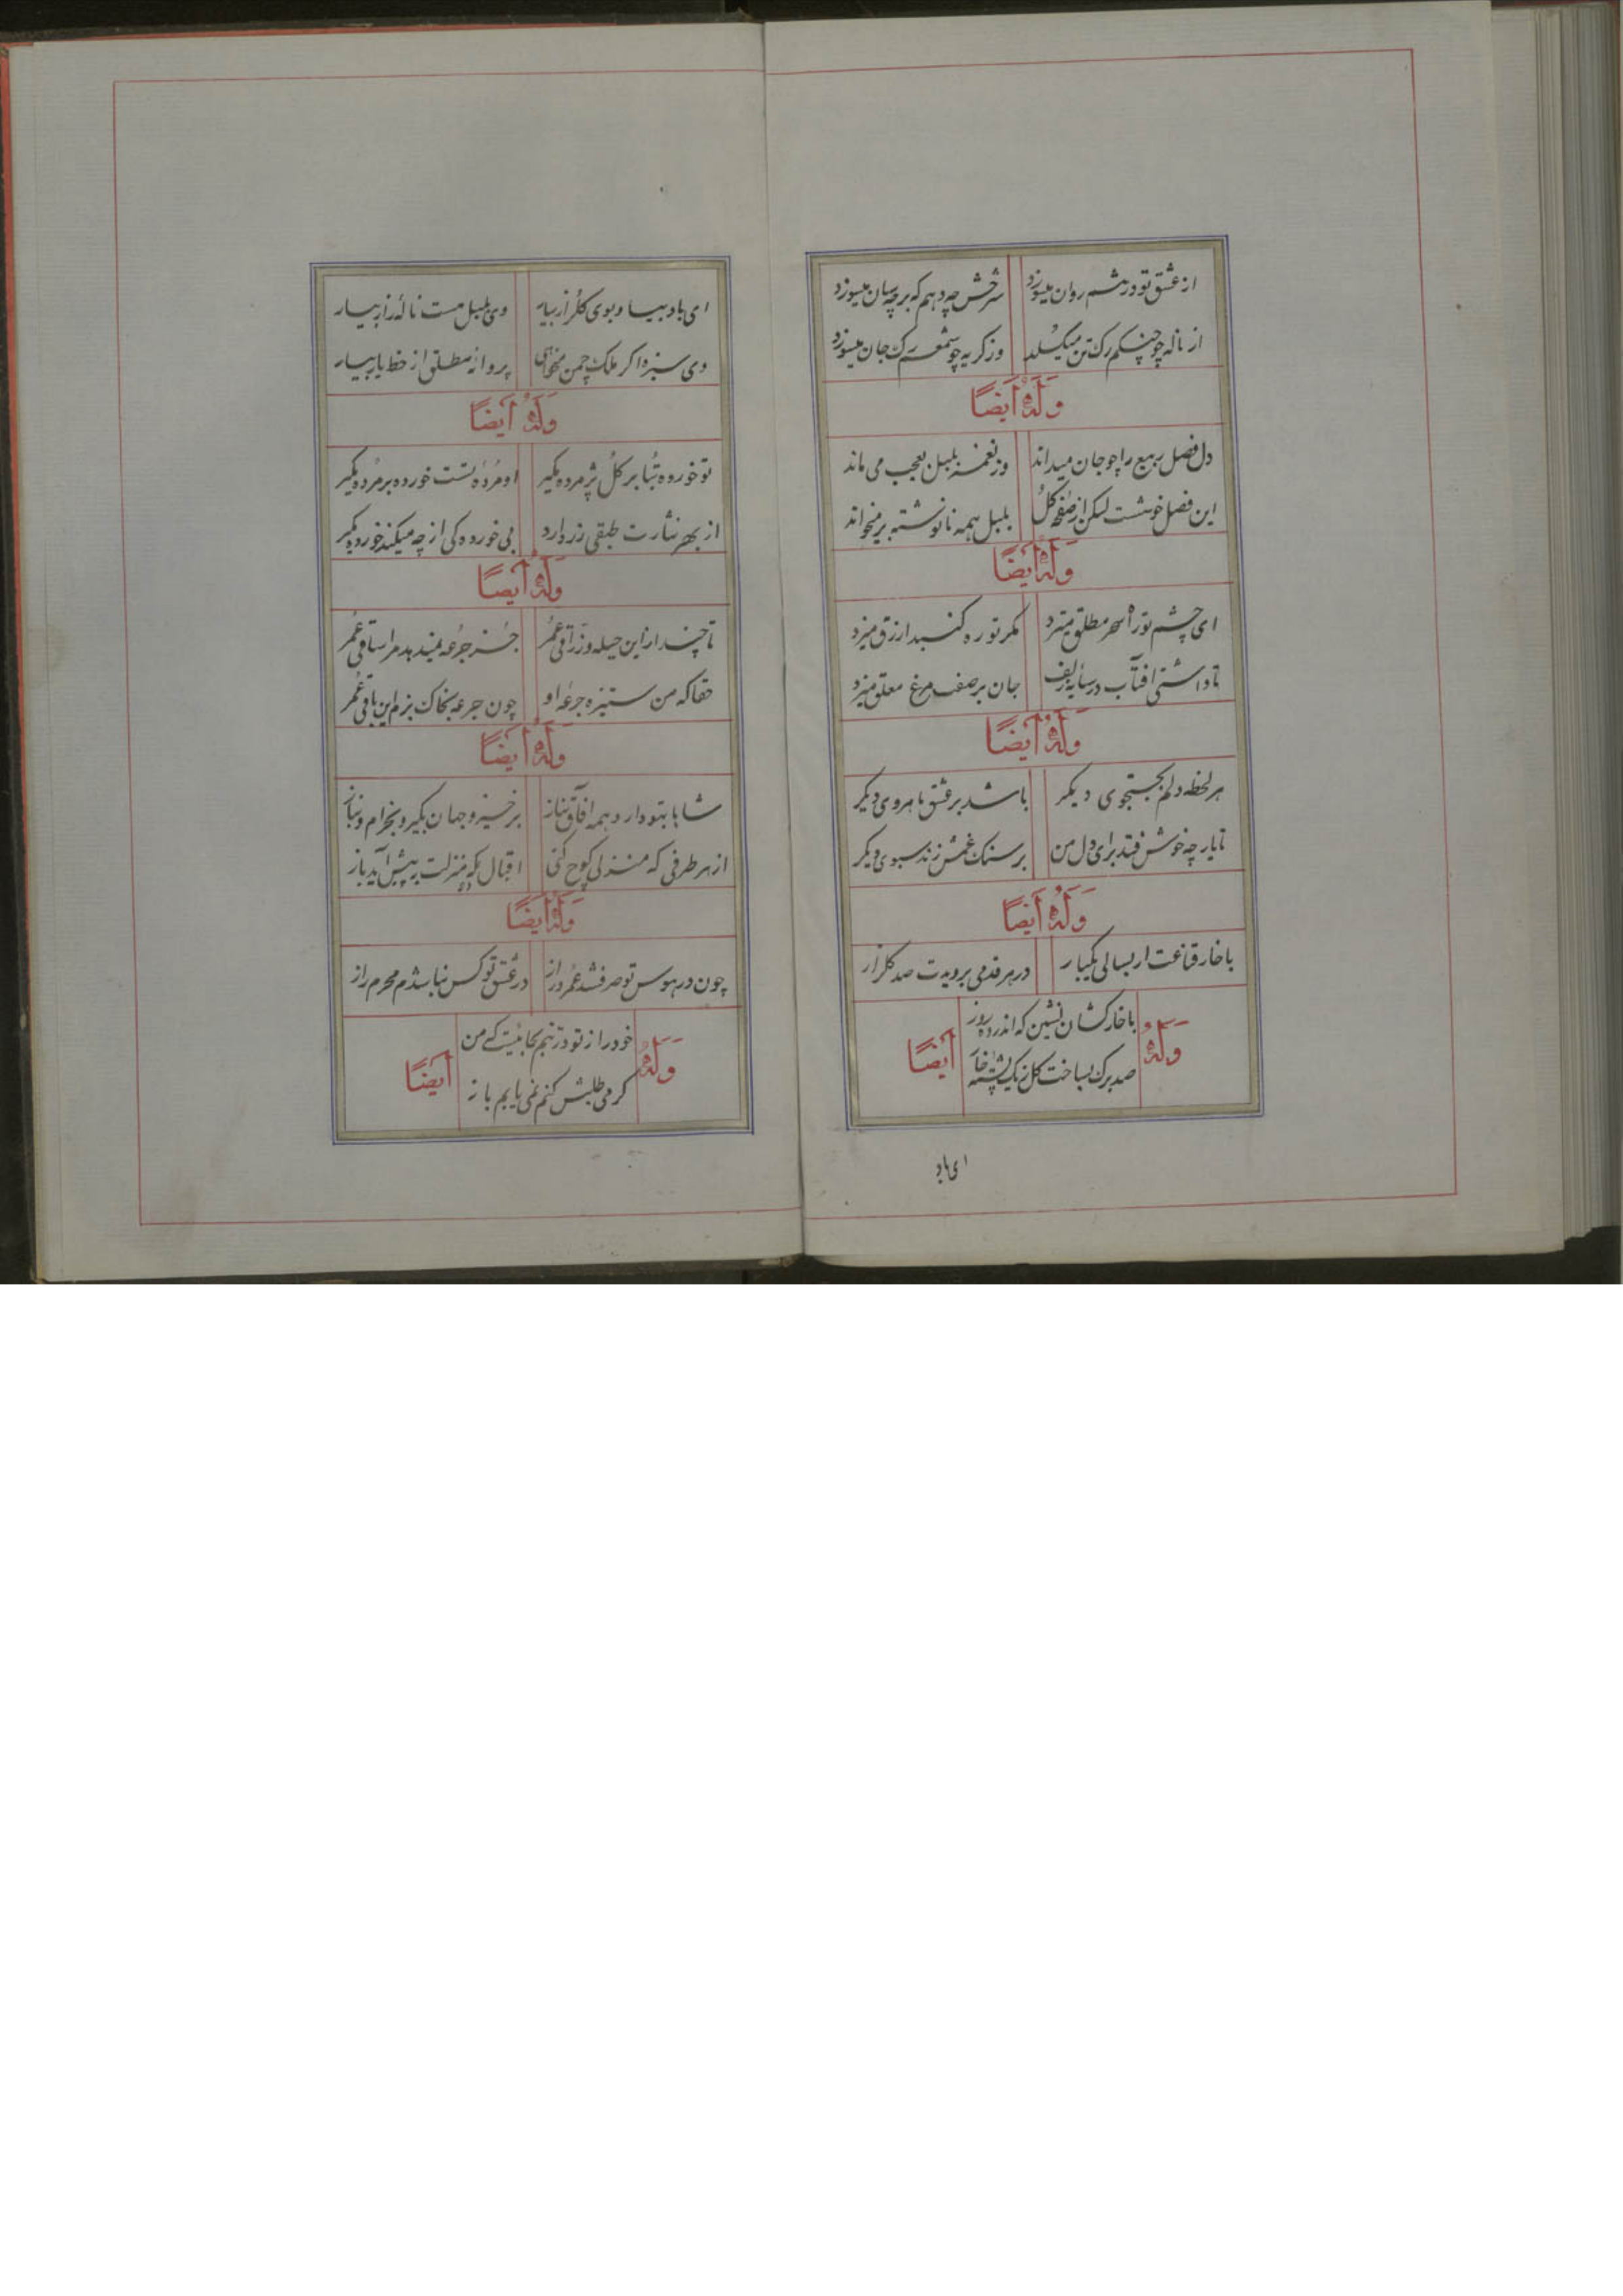 از عشق تو در تنم روان میسوزد شرحش چه دهم که بر چه سان میسوزد
از ناله چو چنگم رک تن میکسلد وز کریه چو شمعم رک جان میسوزد
وَلَهُ أَیضًا
دل فصل ربیع را چو جان میداند وز نغمه بلبل بعجب می ماند
این فصل خوشست لیکن از صفحه کل بلبل همه نانوشته بر میخواند
وَلَهُ أَیضًا
ای چشم تو راه سحر مطلق میزد مکر تو ره کنبد ازرق میزد
تا داشتی افتاب در سایه زلف جان بر صفت مرغ معلق میزد
وَلَهُ أَیضًا
هر لحظه دلم بجستجوی دیکر باشد بر عشق ماهروی دیکر
تا یار چه خوش فتد برای دل من بر سنک غمش زند سبوی دیکر
وَلَهُ أَیضًا
با خار قناعت ار بسالی یکبار در هر قدمی برویدت صد کلزار
با خارکشان نشین که اندر ده روز
وَلَهُ أَیضًا
صد برک بساخت کل ز یک پشته خار
ای باد
ای باد بیا و بوی کلزار بیار وی بلبل مست ناله زار بیار
وی سبزه اکر ملک چمن میخواهی پروانه مطلق از خط یار بیار
وَلَهُ أَیضًا
تو خورده بتا بر کل پژمرده مکیر او مرده تست خورده بر مرده مکیر
از بهر نثارت طبقی زر دارد بی خورده کی ار چه میکند خورده مکیر
وَلَهُ أَیضًا
تا چند ازین حیله و زراقی عمر جز جرعه نمیدهد مرا ساقی عمر
حقا که من ستیزه جرعه او چون جرعه بخاک بزم این باقی عمر
وَلَهُ أَیضًا
شاها بتو دارد همه افاق نیاز برخیز و جهان بکیر و بخرام و بناز
از هر طرفی که منزلی کوچ کنی اقبال منزلت به پیش آید باز
وَلَهُ أَیضًا
چون در هوس تو صرف شد عمر دراز در عشق تو کس نباشدم محرم راز
خود راز تو در تنم کجا نیست که من
وَلَهُ أَیضًا
کر می طلبش کنم نمی یابم باز